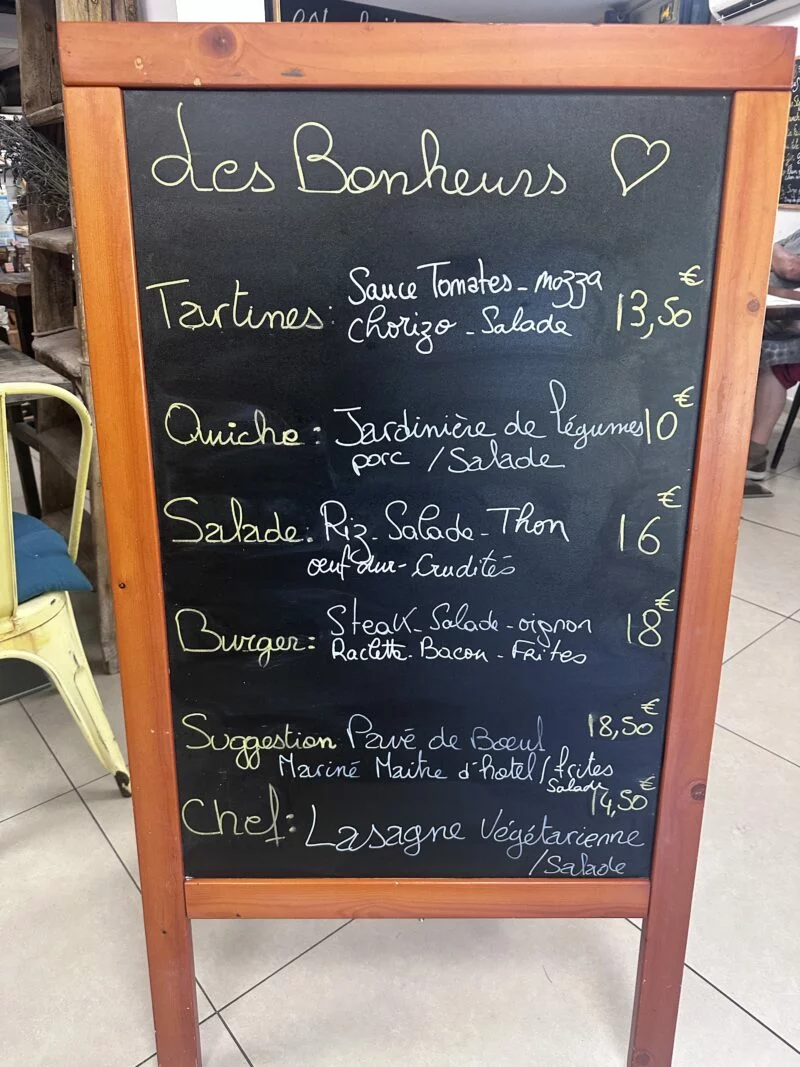 Les Bonheurs ♡
Tartines: Sauce Tomates - mozza
chorizo - Salade 13,50€
Quiche: Jardinière de légumes 10€
porc / Salade
Salade: Riz - Salade - Thon 16€
œuf dur - Crudités
Burger: Steak - Salade - oignon 18€
Raclette - Bacon - Frites
Suggestion Pavé de Bœuf 18,50€
Mariné Maitre d'hotel / frites
Salade
Chef: Lasagne Végétarienne 14,50€
/Salade